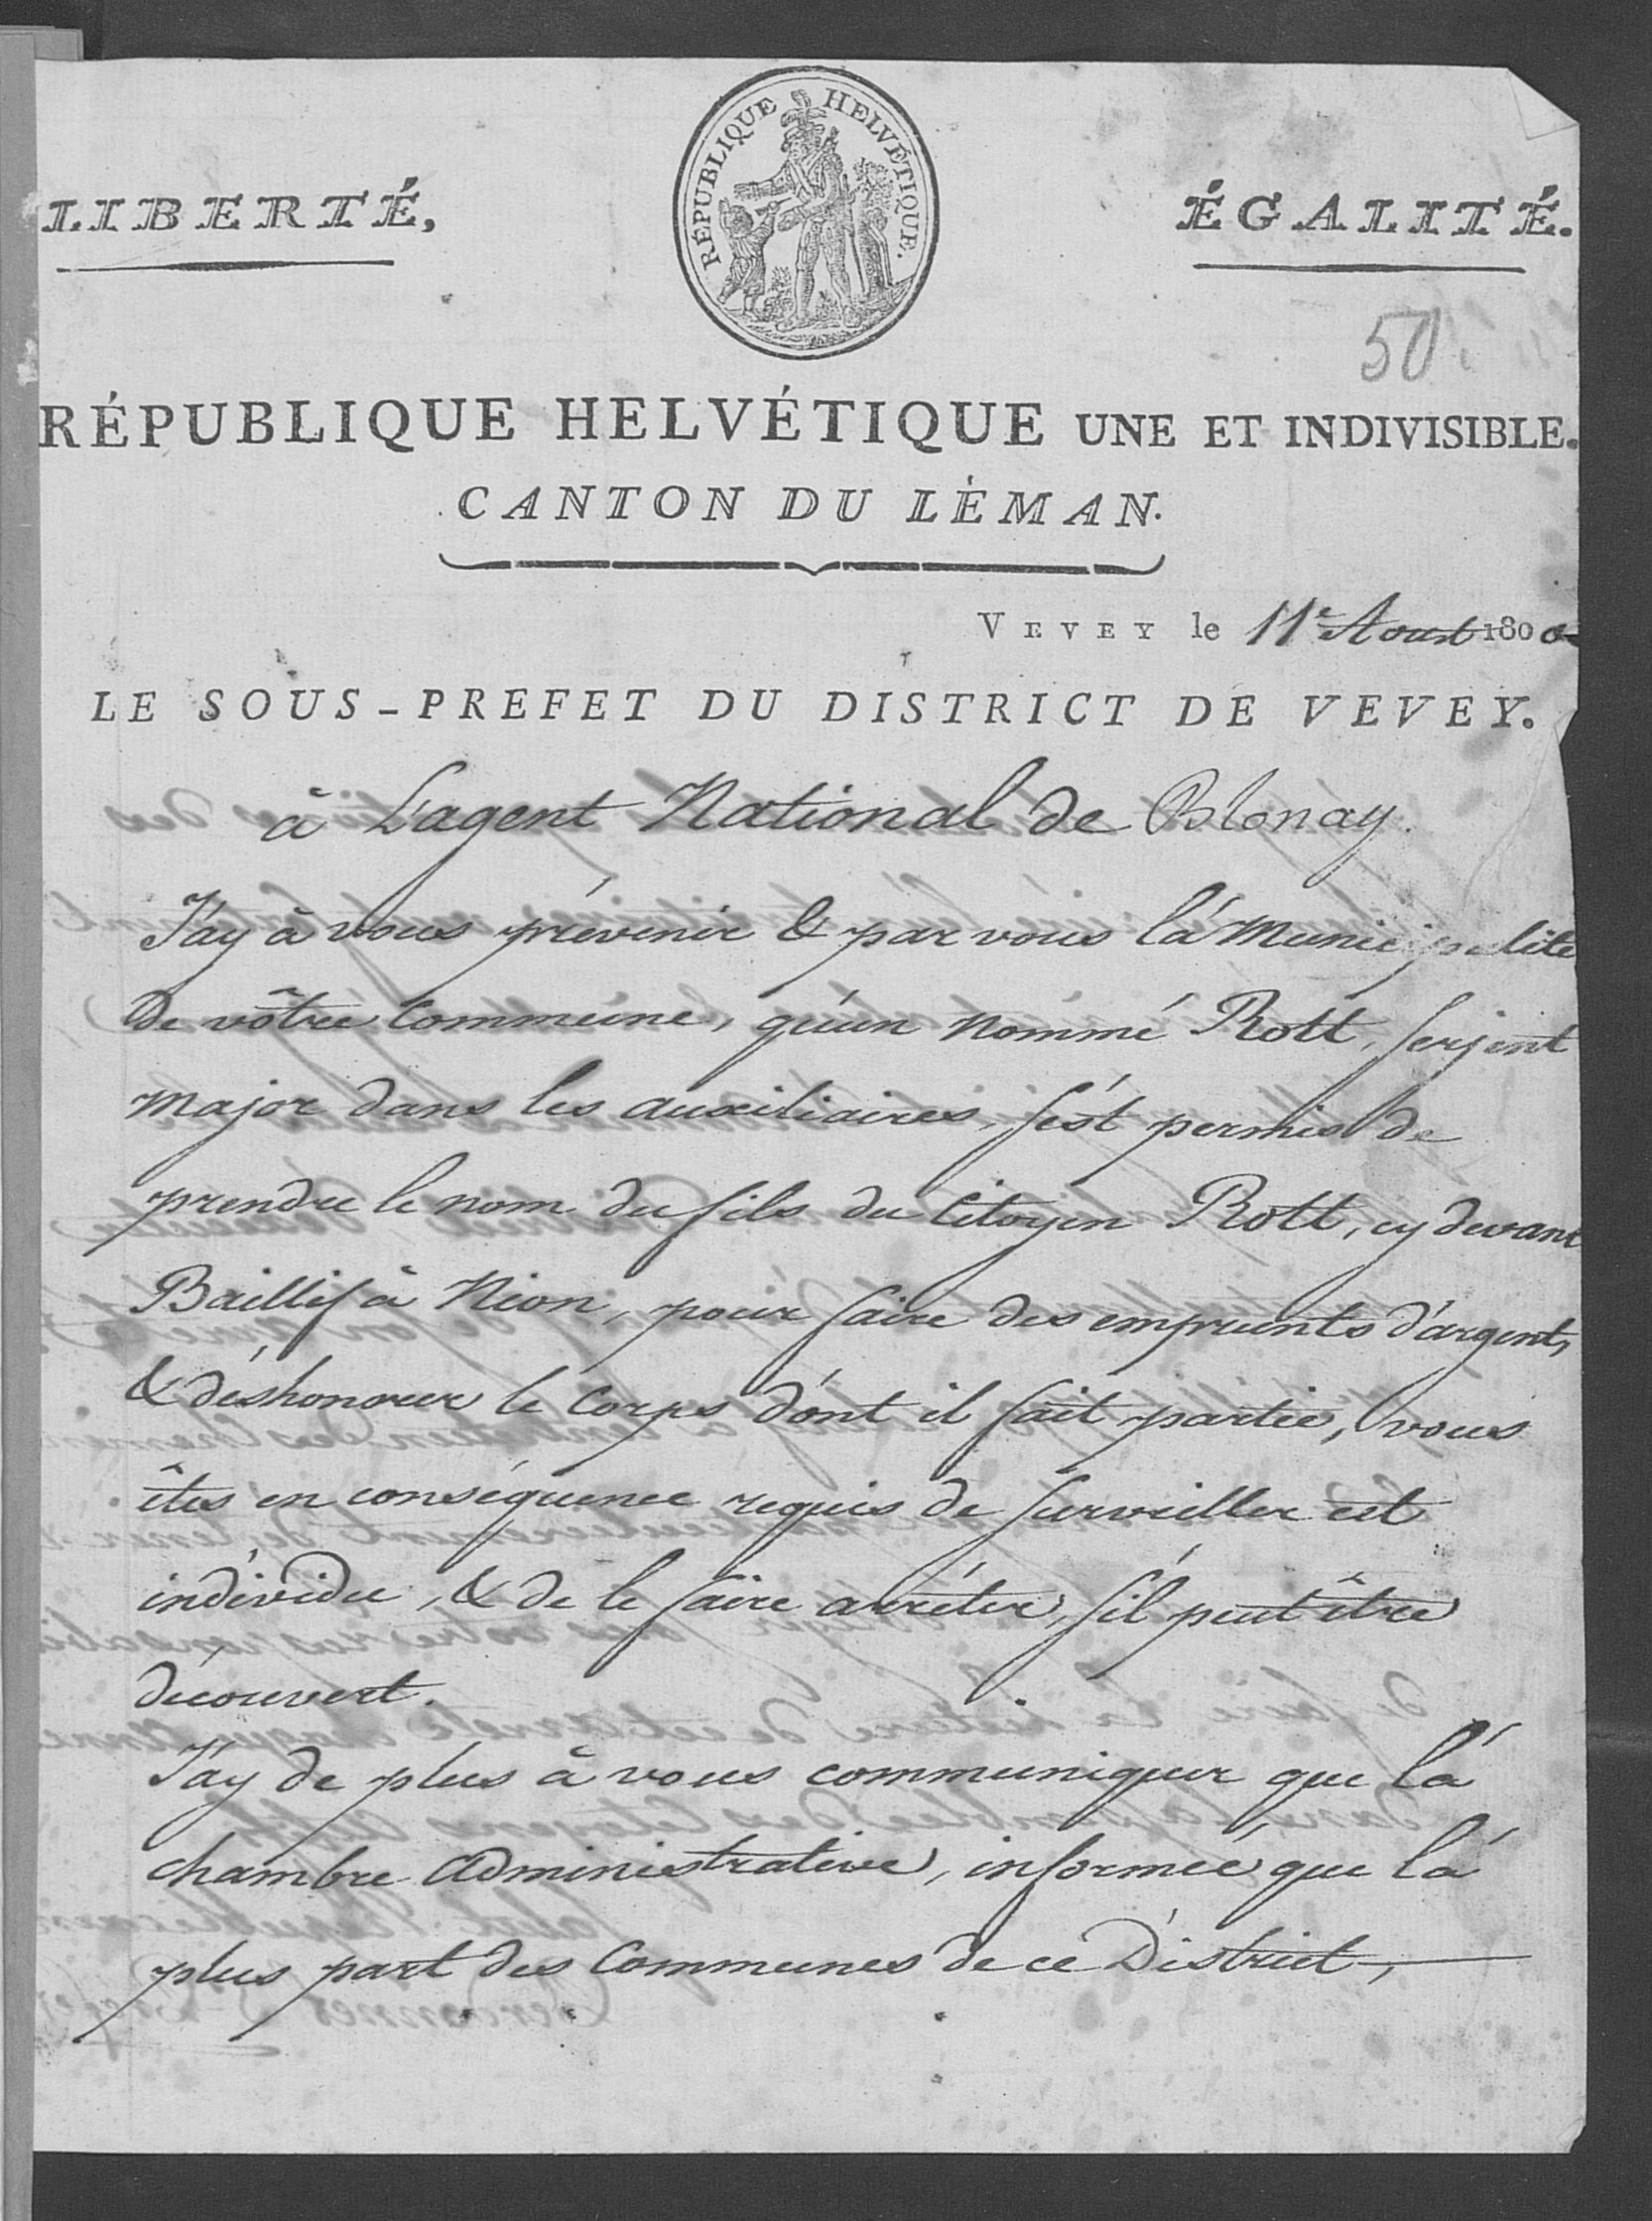 RÉPUBLIQUE HELVÉTIQUE.
LIBERTÉ,
ÉGALITÉ.
50.
RÉPUBLIQUE HELVÉTIQUE UNE ET INDIVISIBLE.
CANTON DU LÉMAN.
VEVEY le 11e Aoust 1800
LE SOUS-PREFET DU DISTRICT DE VEVEY.
à L'agent National de Blonay.
J'ay à vous prévenir & par vous la Municipalité
de vôtre Commune, qu'un nommé Rott, serjent
major dans les auxiliaires, s'est permis de
prendre le nom du fils du Citoyen Rott, cy devant
Baillif à Nion, pour faire des emprunts d'argent,
& déshonorer le Corps dont il fait partie, vous
êtes en conséquence requis de surveiller cet
individu, & de le faire arrêter, s'il peut être
découvert.
J'ay de plus à vous communiquer que la
chambre Administrative, informée que la
plus part des Communes de ce District,